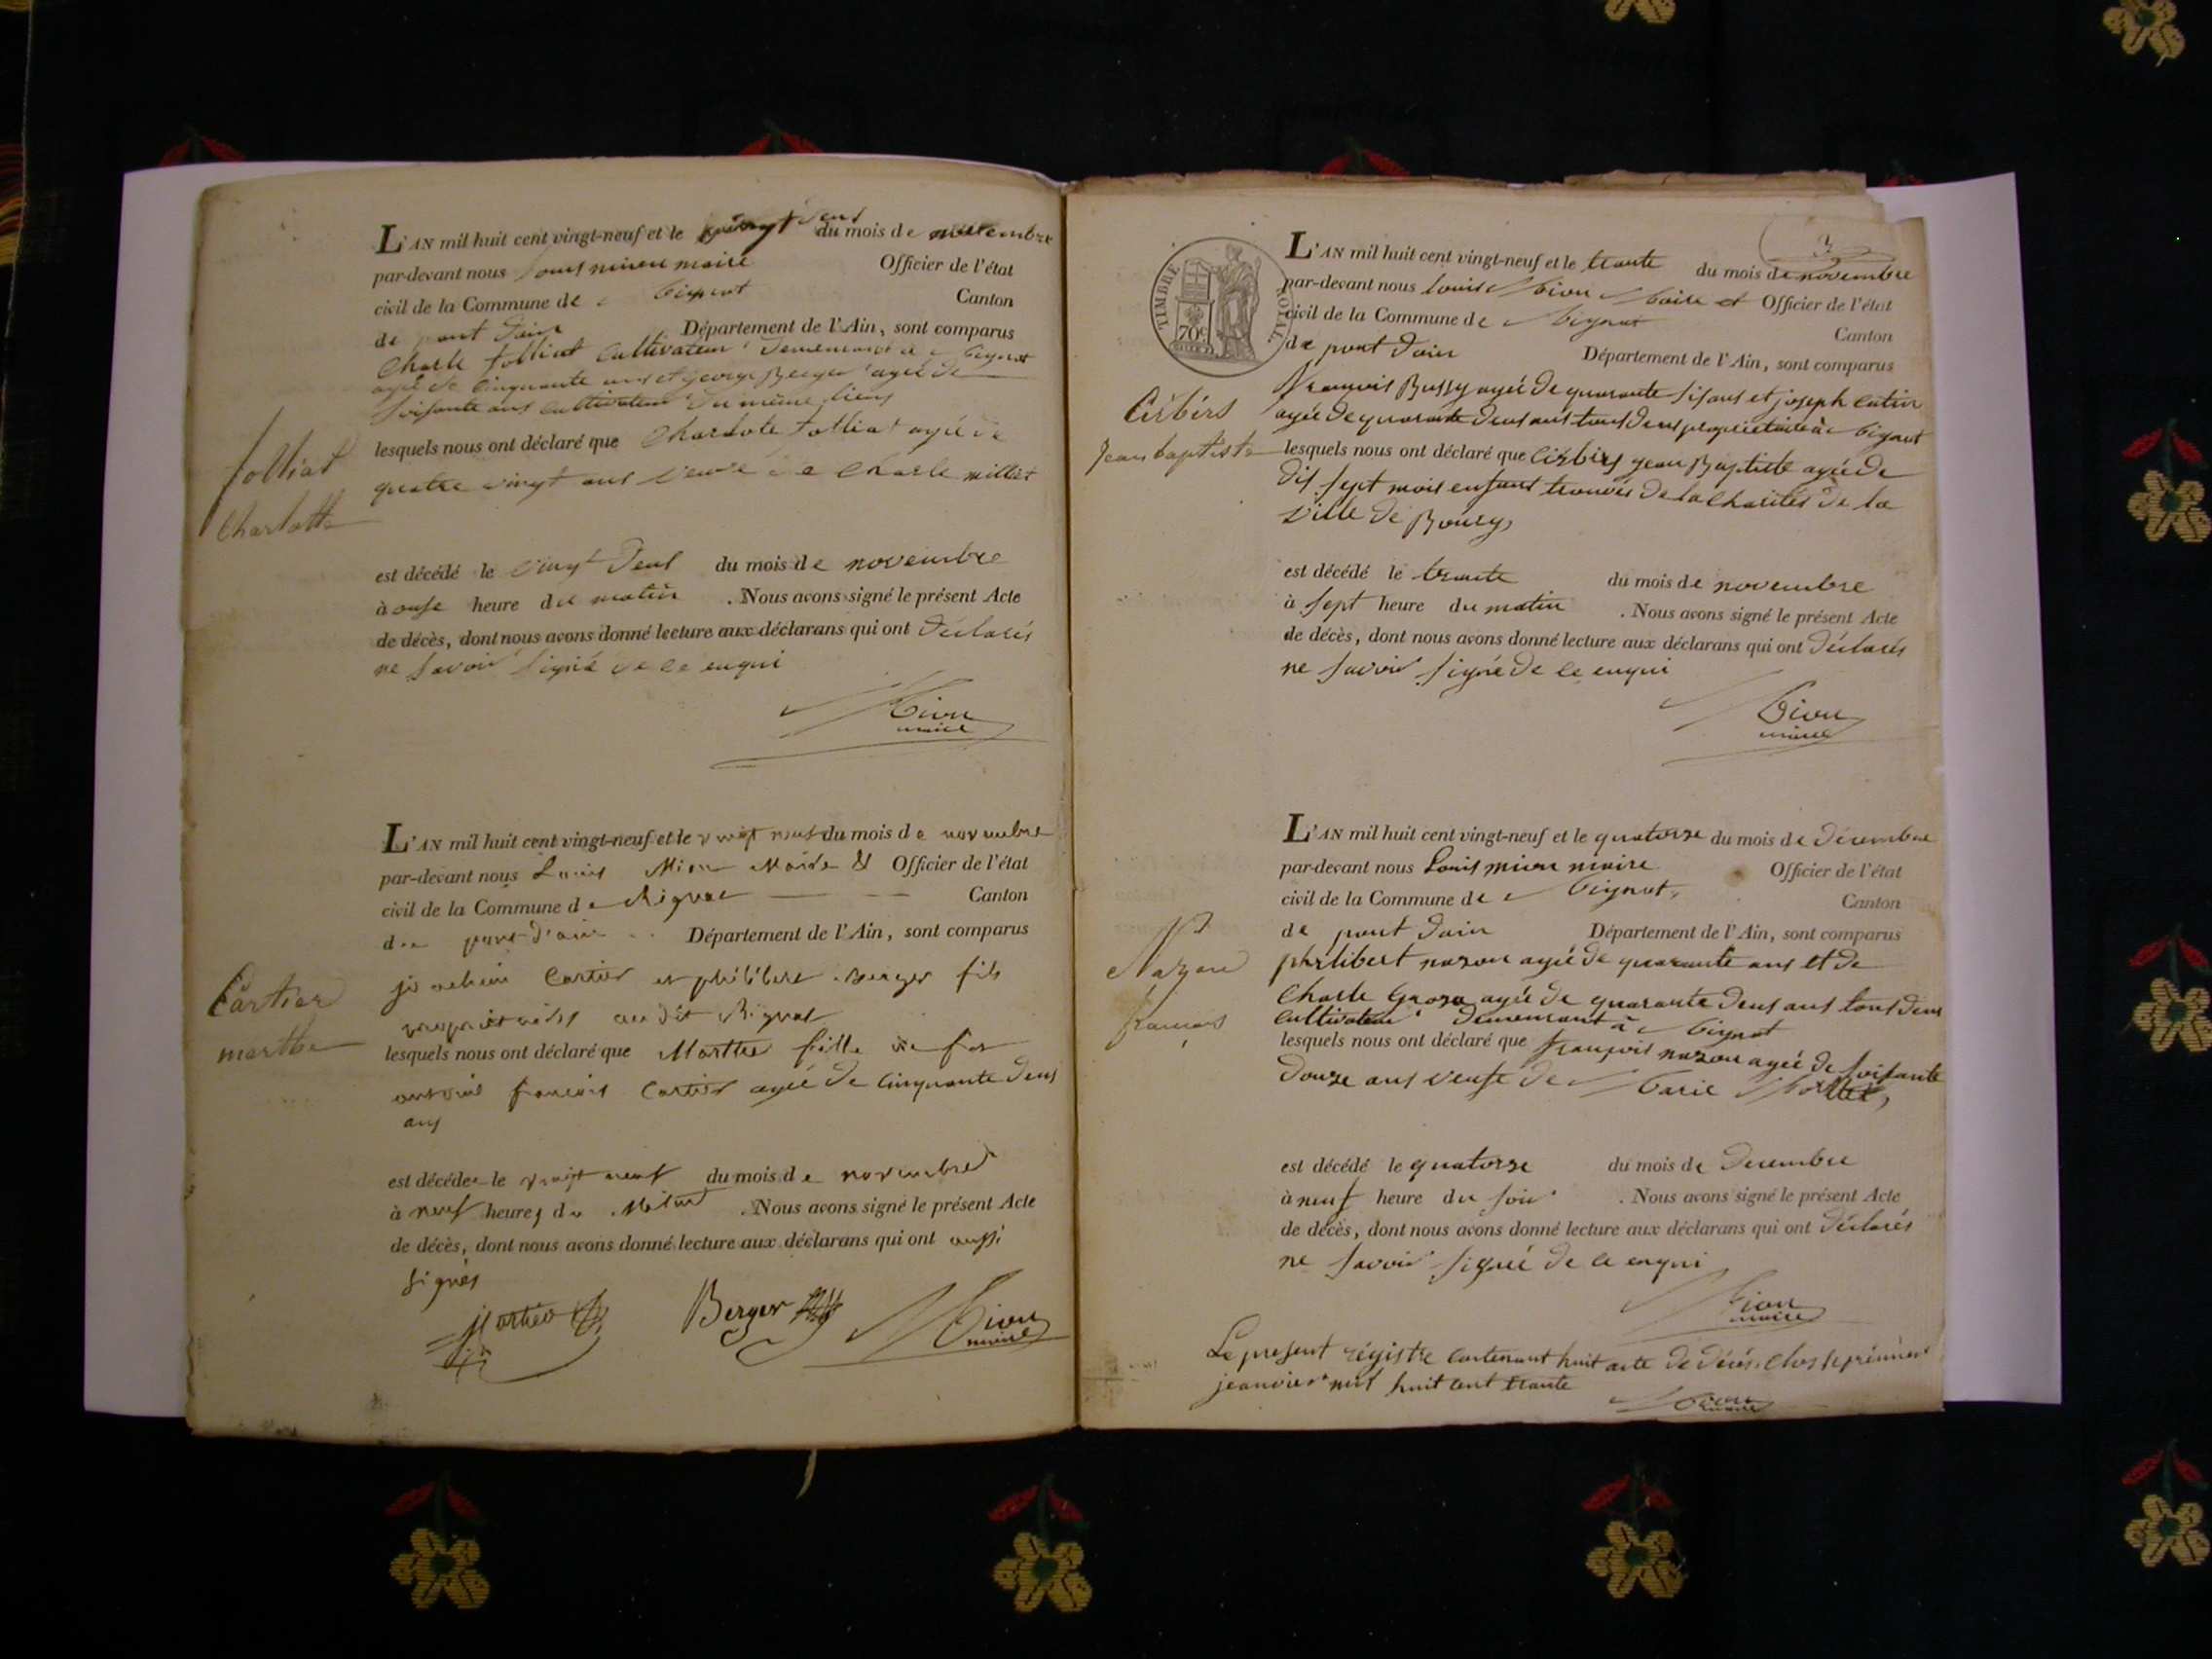 L'AN mil huit cent vingt-neuf et le vingt deus du mois de novembre
par-devant nous Louis mion maire Officier de l'état
civil de la Commune de Mignat Canton
de pont Dain Département de l'Ain, sont comparus
Charle folliat Cultivateur Demeurant à Mignat
agéé de Cinquante ans et george Berger agéé de
soisante ans Cultivateur Du même lieus
folliat
Charlotte
lesquels nous ont déclaré que Charlote folliat agéé de
quatre vingt ans Veuve de Charle millet
est décédé le vingt Deus du mois de novembre
à onse heure du matin . Nous avons signé le présent Acte
de décès, dont nous avons donné lecture aux déclarans qui ont Déclarés
ne savoir signé de ce enqui
Mion
maire
L'AN mil huit cent vingt-neuf et le vingt neuf du mois de novembre
par-devant nous Louis Mion Maire & Officier de l'état
civil de la Commune de Mignat Canton
de pont d'ain Département de l'Ain, sont comparus
Cartier
marthe
joachim Cartier et philibert Berger fils
propriétaires audit Mignat
lesquels nous ont déclaré que Marthe fille de feu
antoine françois Cartier agéé de Cinquante Deus
ans
est décédée le vingt neuf du mois de novembre
à neuf heures du Matin . Nous avons signé le présent Acte
de décès, dont nous avons donné lecture aux déclarans qui ont aussi
signés
Jj Cartier Berger Mion
maire
3
TIMBRE ROYAL
70c
L'AN mil huit cent vingt-neuf et le trante du mois de novembre
par-devant nous Louis Mion Maire et Officier de l'état
civil de la Commune de Mignat Canton
de pont Dain Département de l'Ain, sont comparus
Cirbirs
Jean baptiste
François Bussy agéé de quarante sis ans et joseph Cutin
agéé de quarante Deus ans tous Deus propriétaire à Mignat
lesquels nous ont déclaré que Cirbirs jean Baptiste agéé de
Dis sept mois enfant trouvés de la Charités de la
Ville de Bourg,
est décédé le trante du mois de novembre
à sept heure du matin . Nous avons signé le présent Acte
de décès, dont nous avons donné lecture aux déclarans qui ont Déclarés
ne savoir signé de ce enqui
Mion
maire
L'AN mil huit cent vingt-neuf et le quatorse du mois de Décembre
par-devant nous Louis mion maire Officier de l'état
civil de la Commune de Mignat, Canton
de pont Dain Département de l'Ain, sont comparus
Nazon
françois
philibert nazon agéé de quarante ans et de
Charle agéé de quarante Deus ans tous Deus
Cultivateur Demeurant à Mignat
lesquels nous ont déclaré que françois nazon agéé de soisante
Douze ans veuf de Marie
est décédé le quatorse du mois de Decembre
à neuf heure du soir . Nous avons signé le présent Acte
de décès, dont nous avons donné lecture aux déclarans qui ont Déclarés
ne savoir signéé de ce enqui
Mion
maire
Le present régistre Contenant huit acte de Décés Clos le prémier
jeanvier mil huit cent trante
Mion
maire